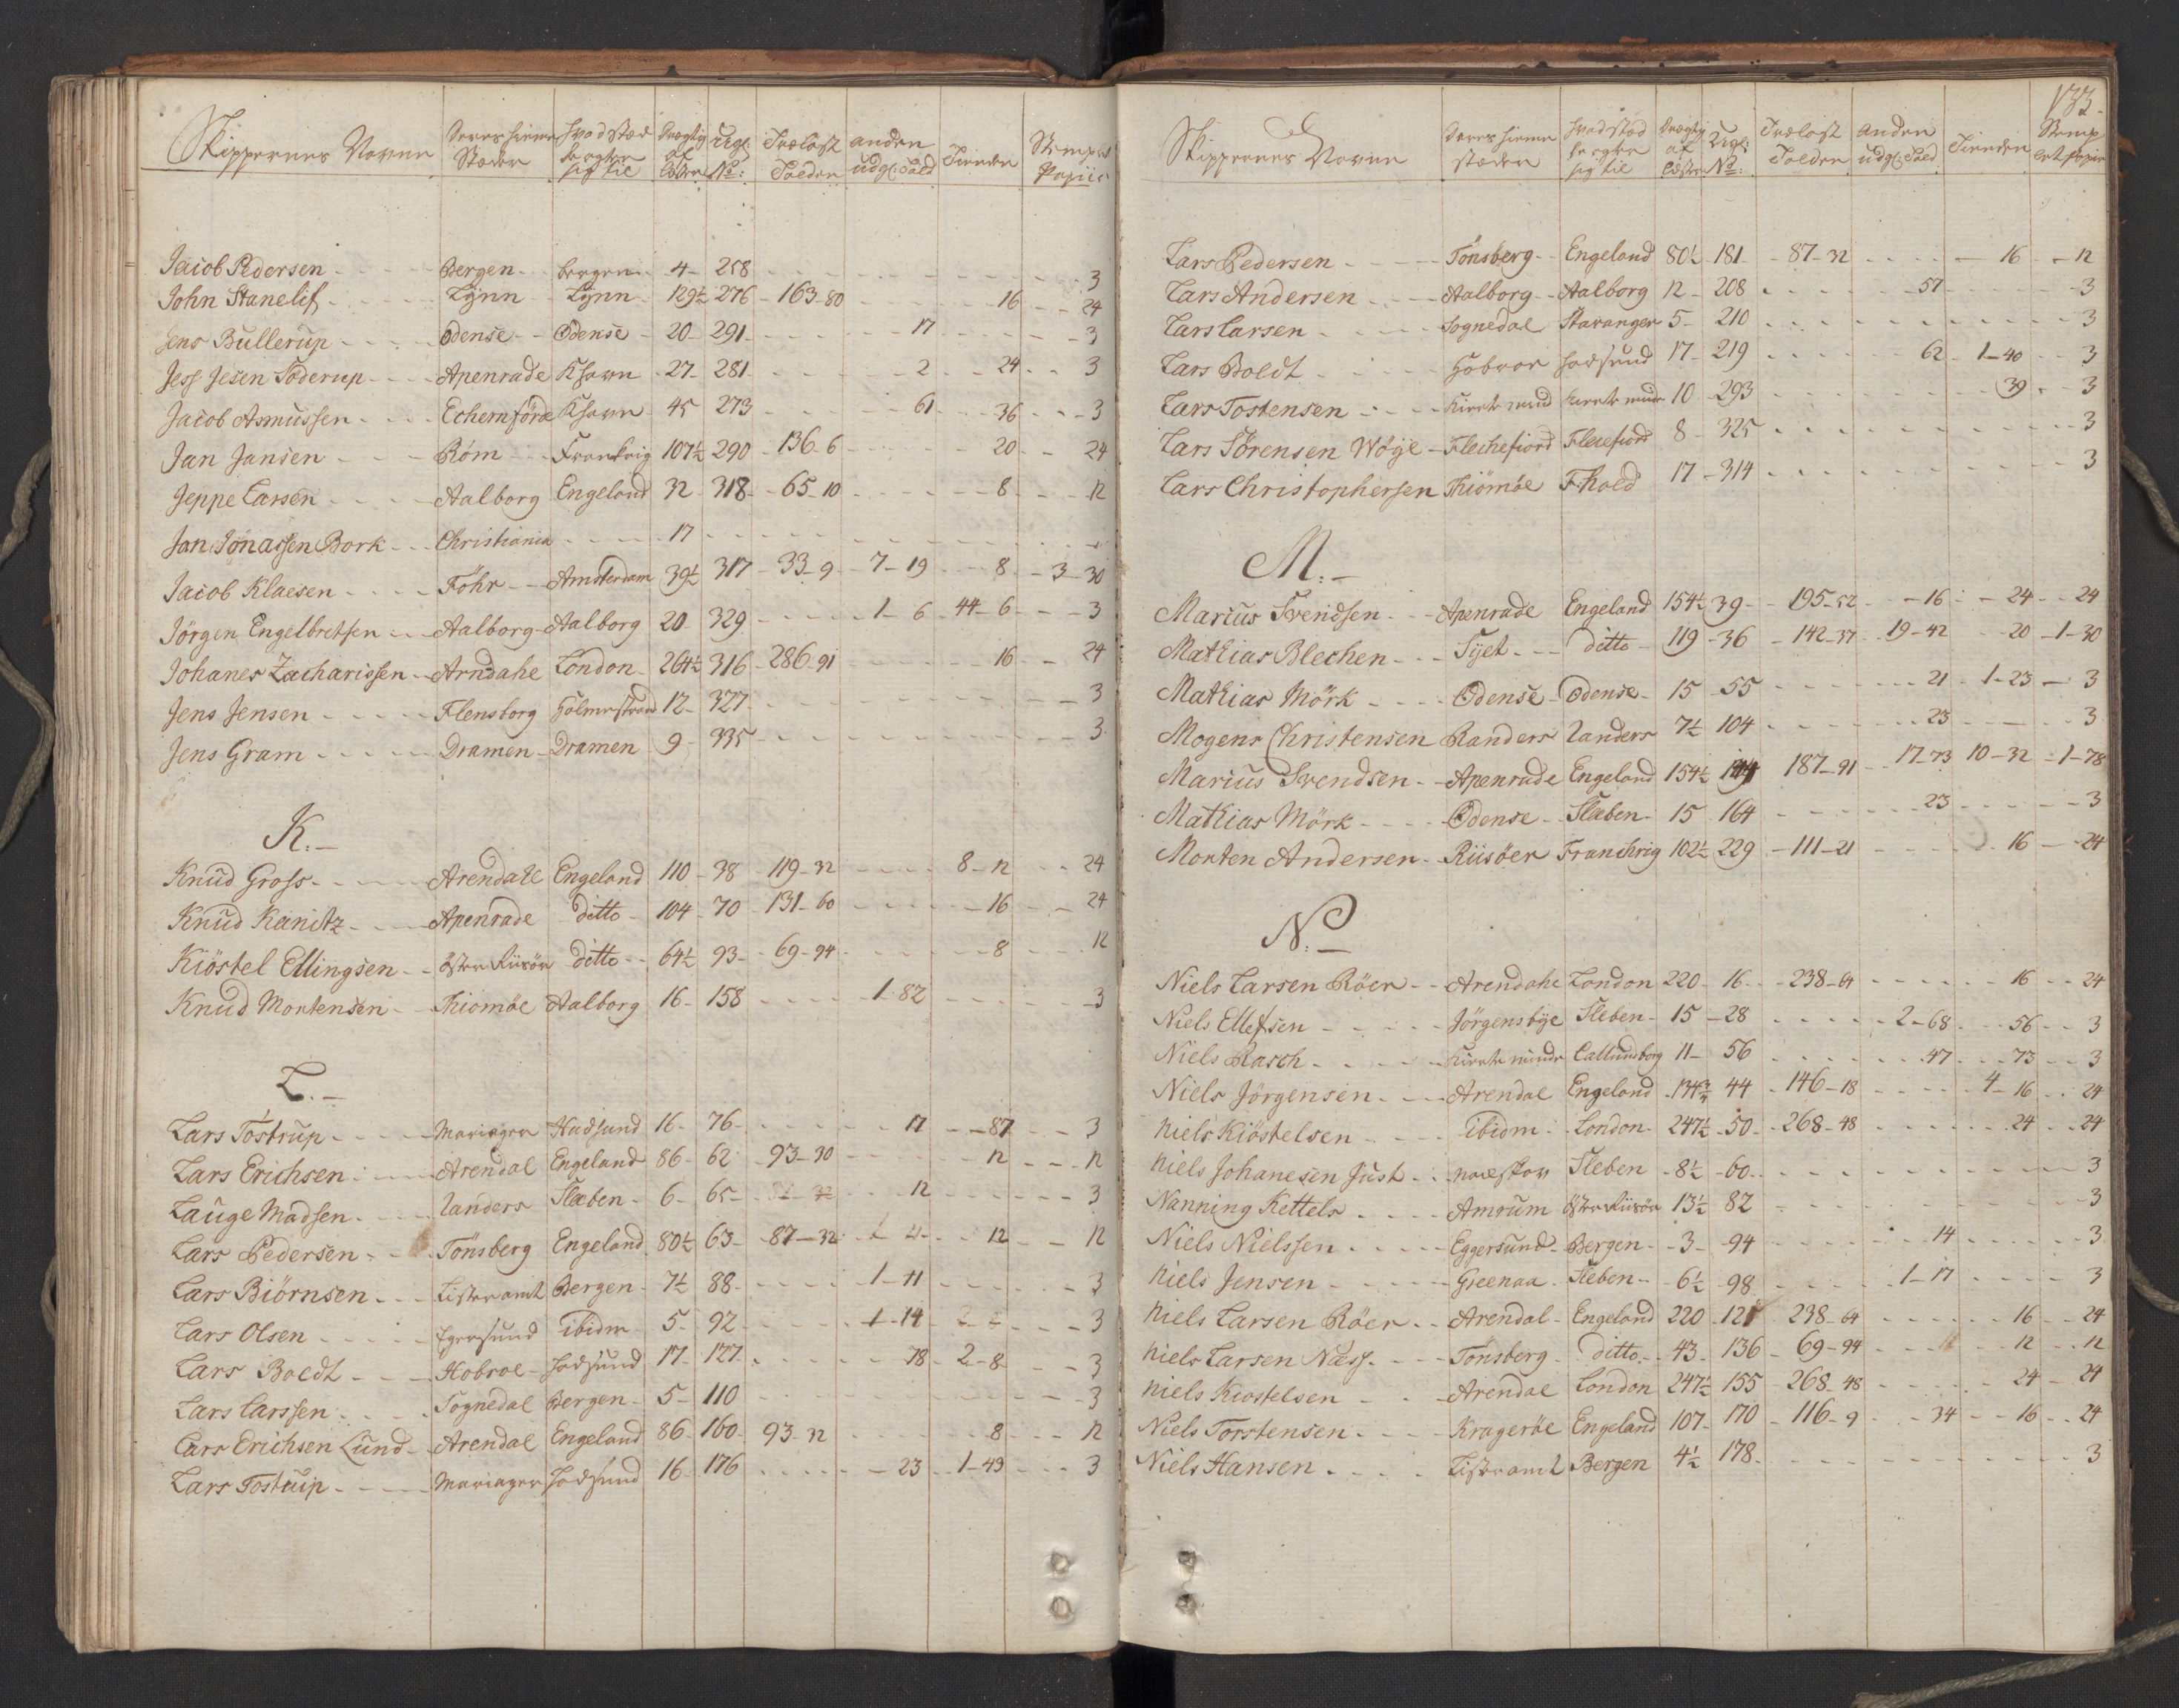 Skippernes Navne | Deres hiem Stæder | hvad stæd de agter sig til | Drægtig af Læster | Udgl: No: | Trælast Tolden | anden udgl: Told | Tienden | Stempel Papiir
Jacob Pedersen | Bergen | bergen | 4 | 258 | 3
John Stanelif | Lynn | Lynn | 129½ | 276 | 163-80 | 16 | 24
Jens Bullerup | Odense | Odense | 20 | 291 | 17 | 3
Jess Jesen Toderup | Apenrade | Khavn | 27 | 281 | 2 | 24 | 3
Jacob Asmussen | Echernförde | Khavn | 45 | 273 | 61 | 36 | 3
Jan Jansen | Röm | Frankrig | 107½ | 290 | 136-6 | 20 | 24
Jeppe Larsen | Aalborg | Engeland | 32 | 318 | 65-10 | 8 | 12
Jan Jonassen Bork | Christiania | 17
Jacob Klaesen | Föhr | Amsterdam | 39½ | 317 | 33-9 | 7-19 | 8 | 3-30
Jörgen Engelbretsen | Aalborg | Aalborg | 20 | 329 | 1-6 | 44-6 | 3
Johanes Zacharissen | Arndahe | London | 264½ | 316 | 286-91 | 16 | 24
Jens Jensen | Flensborg | Holmestrand | 12 | 327 | 3
Jens Gram | Dramen | Dramen | 9 | 335 | 3
K.
Knud Gross | Arendahl | Engeland | 110 | 38 | 119-32 | 8-12 | 24
Knud Kanitz | Apenrade | ditto | 104 | 70 | 131-60 | 16 | 24
Kiöstel Ellingsen | öster Riisöer | ditto | 64½ | 93 | 69-94 | 8 | 12
Knud Mortensen | Thiomöe | Aalborg | 16 | 158 | 1-82 | 3
L.
Lars Töstrup | Mariager | Hadsund | 16 | 76 | 17 | 87 | 3
Lars Erichsen | Arendal | Engeland | 86 | 62 | 93-30 | 12 | 12
Lauge Madsen | Randers | Flæben | 6 | 65 | 12 | 3
Lars Pedersen | Tönsberg | Engeland | 80½ | 63 | 87-32 | 12 | 12
Lars Biörnsen | Lister amt | Bergen | 7½ | 88 | 1-11 | 3
Lars Olsen | Egersund | ibidm | 5 | 92 | 1-14 | 3
Lars Boldt | Hobroe | Hadsund | 17 | 127 | 78 | 2-8 | 3
Lars Larssen | Sognedal | Bergen | 5 | 110 | 3
Lars Erichsen Lund | Arendal | Engeland | 86 | 160 | 93-32 | 8 | 12
Lars Tostrup | Mariager | Hadsund | 16 | 176 | 23 | 1-49 | 3
133
Skippernes Navne | Deres hiem stæder | hvad stæd de agter sig til | Drægtig af Læster | Udgl: No: | Trælast Tolden | anden udgl: Told | Tienden | Stemplet papiir
Lars Pedersen | Tönsberg | Engeland | 80½ | 181 | 87-32 | 16 | 12
Lars Andersen | Aalborg | Aalborg | 12 | 208 | 57 | 3
Lars Larsen | Sognedal | Stavanger | 5 | 210 | 3
Lars Boldt | Hobroe | Hadsund | 17 | 219 | 62 | 1-40 | 3
Lars Tostensen | Kierteminde | Kierteminde | 10 | 293 | 39 | 3
Lars Sörensen Wöye | Flechefiord | Flechefiord | 8 | 325 | 3
Lars Christophersen | Thiömöe | F:hald | 17 | 314 | 3
M.
Marius Svendsen | Apenrade | Engeland | 154½ | 39 | 195-52 | 16 | 24 | 24
Mathias Blechen | Syet | ditto | 119 | 36 | 142-37 | 19-42 | 20 | 1-30
Mathias Mörk | Odense | Odense | 15 | 55 | 21 | 1-23 | 3
Mogens Christensen | Randers | Randers | 7½ | 104 | 23 | 3
Marius Svendsen | Apenrade | Engeland | 154½ | 144 | 187-91 | 17-73 | 10-32 | 1-78
Mathias Mörk | Odense | Flæben | 15 | 164 | 23 | 3
Morten Andersen | Riisöer | Franchrig | 102½ | 229 | 111-21 | 16 | 24
N.
Niels Larsen Röer | Arendahe | London | 220 | 16 | 238-64 | 16 | 24
Niels Ellefsen | Jörgensbye | Fleben | 15 | 28 | 2-68 | 56 | 3
Niels Rasch | Kierteminde | Callundborg | 11 | 56 | 47 | 73 | 3
Niels Jörgensen | Arendal | Engeland | 134¾ | 44 | 146-18 | 4-16 | 24
Niels Kiöstelsen | ibidm | London | 247½ | 50 | 268-48 | 24 | 24
Niels Johanesen Just | Nakskov | Fleben | 8½ | 60 | 3
Nanning Kettels | Amrum | Öster Riisöer | 13½ | 82 | 3
Niels Nielssen | Eggersund | Bergen | 3 | 94 | 14 | 3
Niels Jensen | Greenaa | Fleben | 6½ | 98 | 1-17 | 3
Niels Larsen Röer | Arendal | Engeland | 220 | 121 | 238-64 | 16 | 24
Niels Larsen Næss | Tönsberg | ditto | 43 | 136 | 69-94 | 12 | 12
Niels Kiostelsen | Arendal | London | 247½ | 155 | 268-48 | 24 | 24
Niels Torstensen | Krageröe | Engeland | 107 | 170 | 116-9 | 34 | 16 | 24
Niels Hansen | Lister amt | Bergen | 4½ | 178 | 3